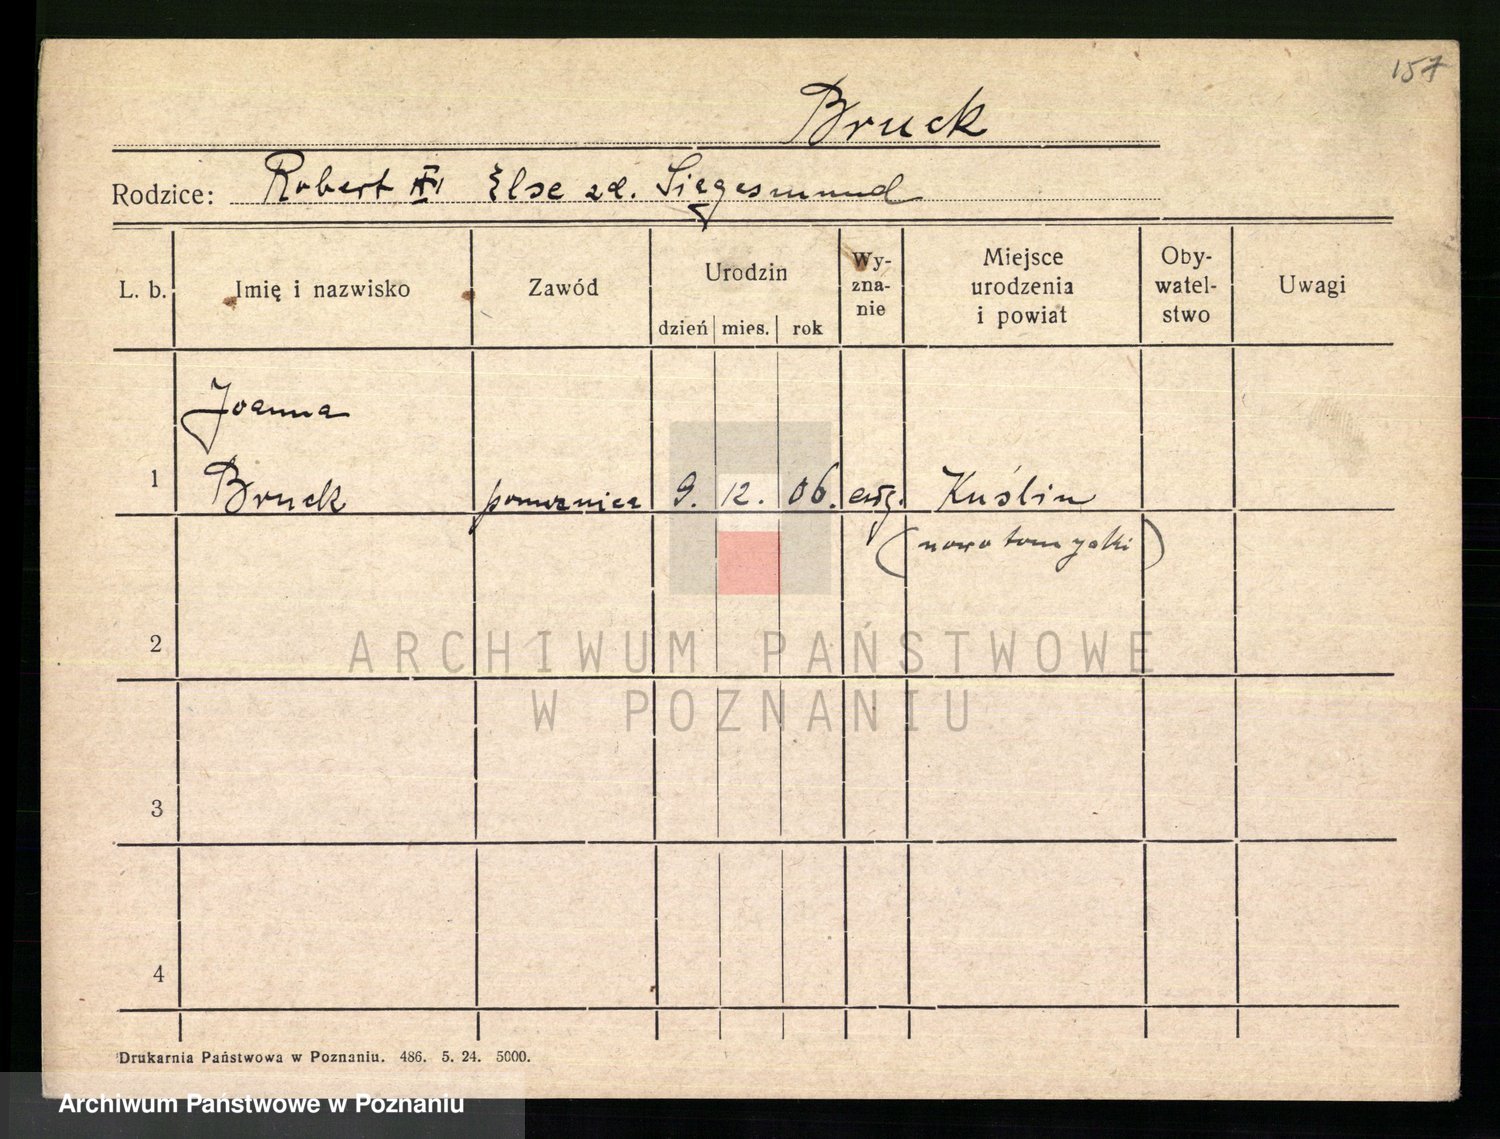 157
Bruck
Rodzice: Robert Else zd. Siegesmund
L. b. Imię i nazwisko Zawód Urodzin dzień mies. rok Wy-zna-nie Miejsce urodzenia i powiat Oby-watel-stwo Uwagi
Joanna
1 Bruck 9. 12. 06. Kuślin
(nowotomyski)
2
3
4
Drukarnia Państwowa w Poznaniu. 486. 5. 24. 5000.
ARCHIWUM PAŃSTWOWE
W POZNANIU
Archiwum Państwowe w Poznaniu